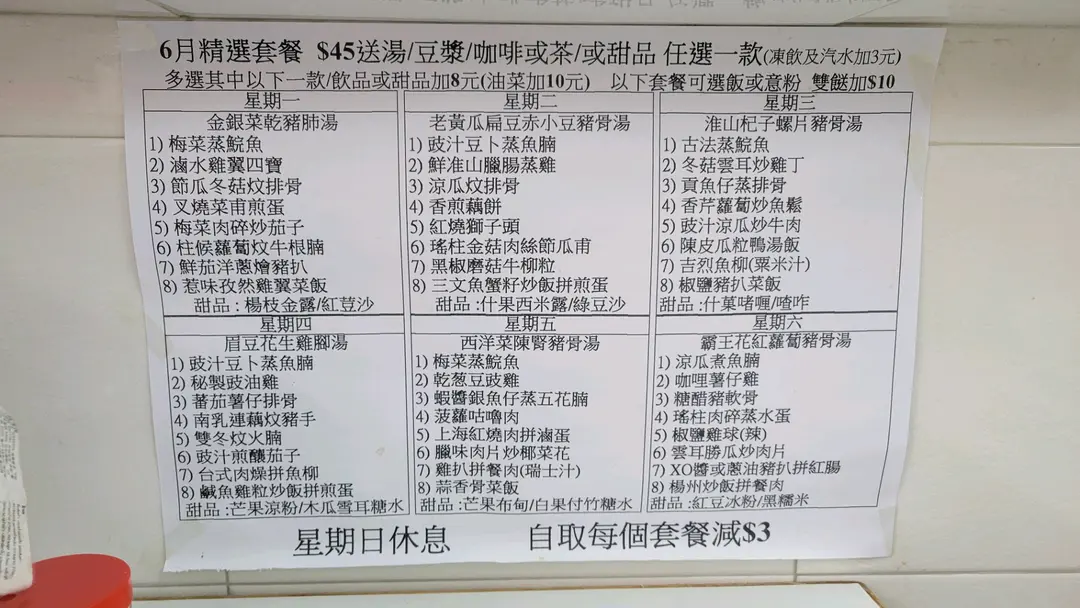 6月精選套餐 $45送湯/豆漿/咖啡或茶/或甜品 任選一款(凍飲及汽水加3元)
多選其中以下一款/飲品或甜品加8元(油菜加10元) 以下套餐可選飯或意粉 雙餸加$10
星期一
金銀菜乾豬肺湯
1) 梅菜蒸鯇魚
2) 滷水雞翼四寶
3) 節瓜冬菇炆排骨
4) 叉燒菜甫煎蛋
5) 梅菜肉碎炒茄子
6) 柱候蘿蔔炆牛根腩
7) 鮮茄洋蔥燴豬扒
8) 惹味孜然雞翼菜飯
甜品 : 楊枝金露/紅荳沙
星期二
老黃瓜扁豆赤小豆豬骨湯
1) 豉汁豆卜蒸魚腩
2) 鮮淮山臘腸蒸雞
3) 涼瓜炆排骨
4) 香煎藕餅
5) 紅燒獅子頭
6) 瑤柱金菇肉絲節瓜甫
7) 黑椒磨菇牛柳粒
8) 三文魚蟹籽炒飯拼煎蛋
甜品 : 什果西米露/綠豆沙
星期三
淮山杞子螺片豬骨湯
1) 古法蒸鯇魚
2) 冬菇雲耳炒雞丁
3) 貢魚仔蒸排骨
4) 香芹蘿蔔炒魚鬆
5) 豉汁涼瓜炒牛肉
6) 陳皮瓜粒鴨湯飯
7) 吉烈魚柳(粟米汁)
8) 椒鹽豬扒菜飯
甜品 : 什菓啫喱/喳咋
星期四
眉豆花生雞腳湯
1) 豉汁豆卜蒸魚腩
2) 秘製豉油雞
3) 蕃茄薯仔排骨
4) 南乳連藕炆豬手
5) 雙冬炆火腩
6) 豉汁煎釀茄子
7) 台式肉燥拼魚柳
8) 鹹魚雞粒炒飯拼煎蛋
甜品 : 芒果涼粉/木瓜雪耳糖水
星期五
西洋菜陳腎豬骨湯
1) 梅菜蒸鯇魚
2) 乾葱豆豉雞
3) 蝦醬銀魚仔蒸五花腩
4) 菠蘿咕嚕肉
5) 上海紅燒肉拼滷蛋
6) 臘味肉片炒椰菜花
7) 雞扒拼餐肉(瑞士汁)
8) 蒜香骨菜飯
甜品 : 芒果布甸/白果付竹糖水
星期六
霸王花紅蘿蔔豬骨湯
1) 涼瓜煮魚腩
2) 咖哩薯仔雞
3) 糖醋豬軟骨
4) 瑤柱肉碎蒸水蛋
5) 椒鹽雞球(辣)
6) 雲耳勝瓜炒肉片
7) XO醬或蔥油豬扒拼紅腸
8) 楊州炒飯拼餐肉
甜品 : 紅豆冰粉/黑糯米
星期日休息 自取每個套餐減$3